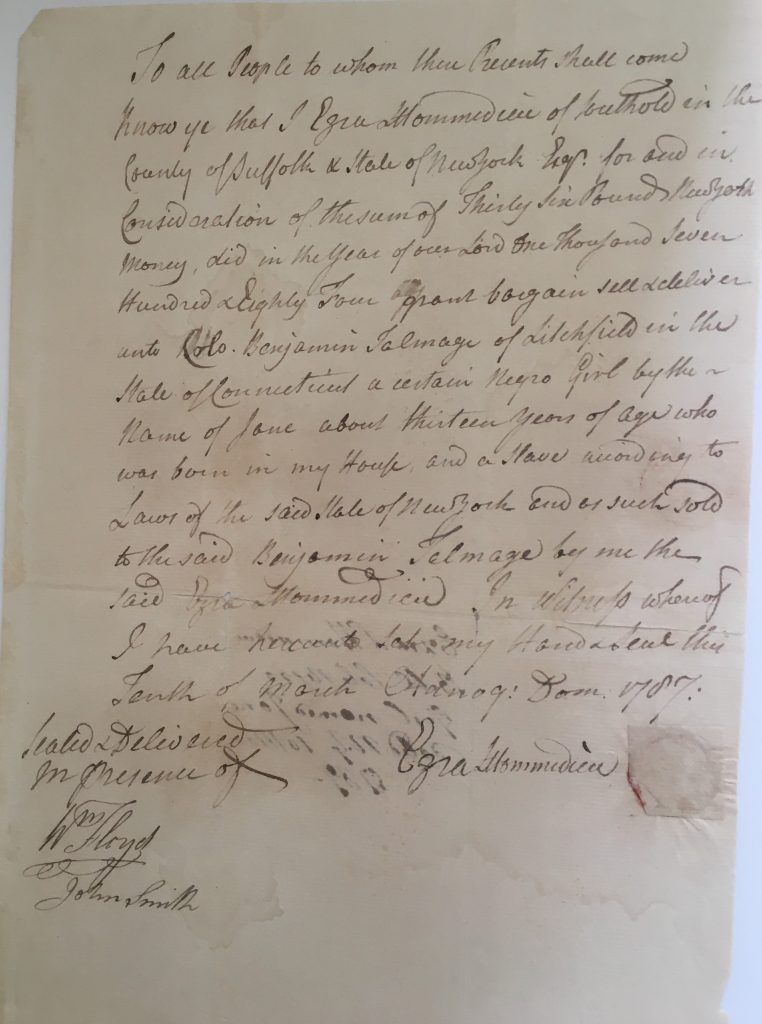 To all People to whom these Presents shall come
Know ye that I Ezra LHommedieu of Southold in the
County of Suffolk & State of NewYork Esqr. for and in
Consideration of the sum of Thirty Six Pounds NewYork
Money, did in the Year of our Lord One Thousand Seven
Hundred & Eighty Four grant bargain sell & deliver
unto Colo. Benjamin Talmage of Litchfield in the
State of Connecticut a certain Negro Girl by the
Name of Jane about thirteen Years of Age who
was born in my House, and a Slave according to
Laws of the said State of NewYork and as such sold
to the said Benjamin Talmage by me the
said Ezra LHommedieu In Witness whereof
I have hereunto Set my Hand & Seal this
Tenth of March Dom. 1787:
Sealed & Delivered
In presence of
Ezra LHommedieu
Wm Floyd
John Smith